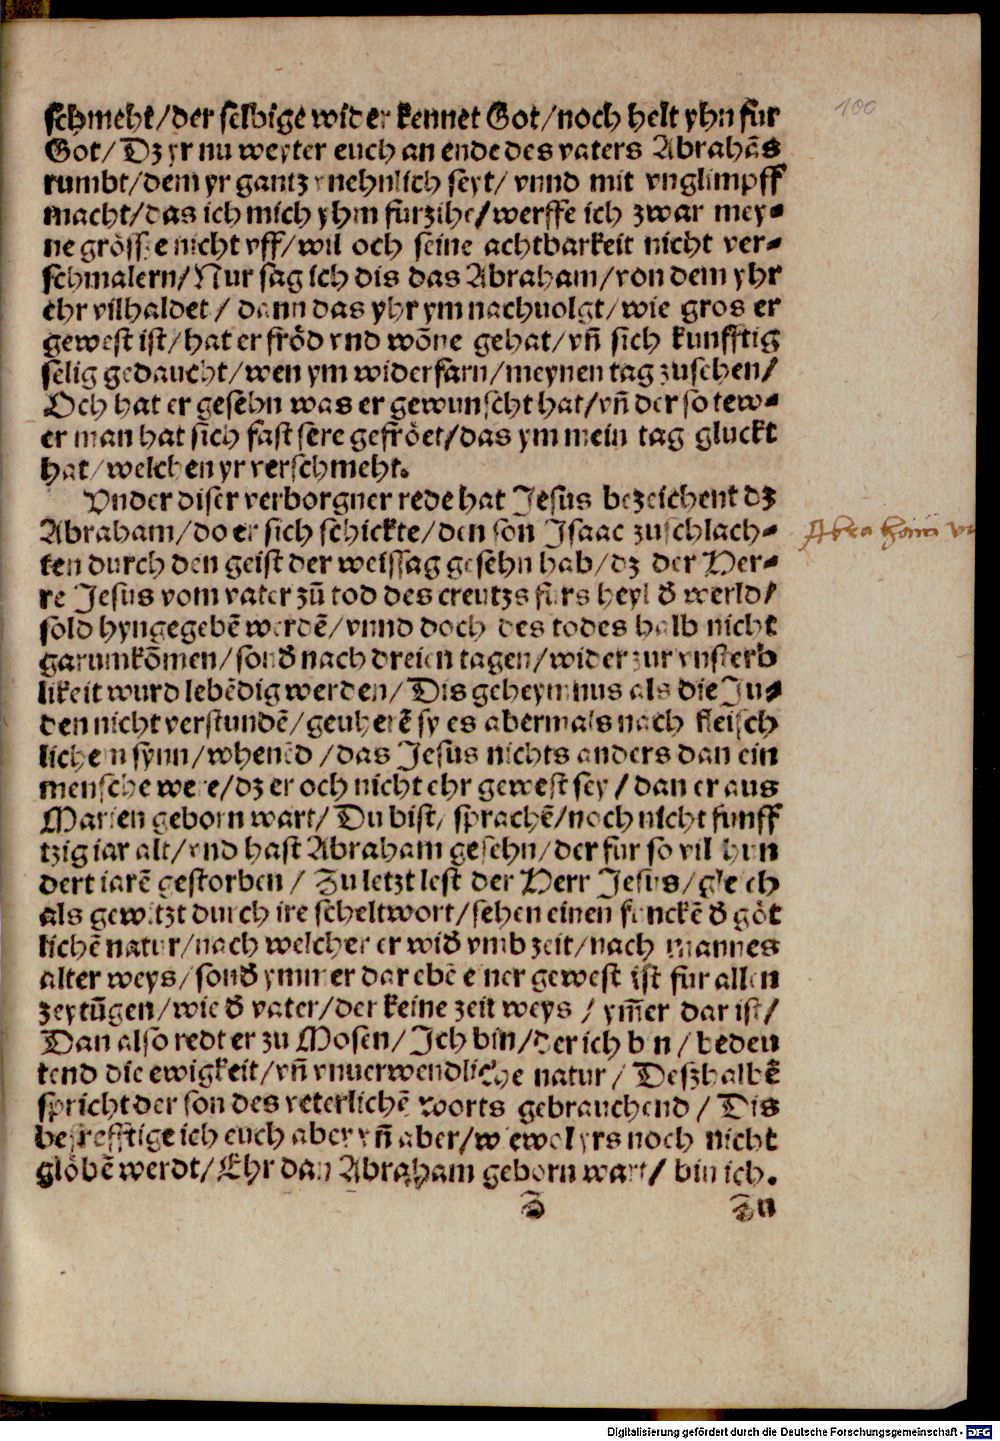 100
schmeht/der selbige wider kennet Got/noch helt yhn fur
Got/ Dz yr nu weyter euch an ende des vaters Abrahãs
rumbt/dem yr gantz vnehnlich seyt/ vnnd mit vnglimpff
macht/das ich mich yhm furzihe/werffe ich zwar mey⸗
ne grösse nicht vff/wil och seine achtbarkeit nicht ver⸗
schmalern/Nur sag ich dis das Abraham/von dem yhr
ehr vilhaldet/ dann das yhr ym nachuolgt/wie gros er
gewest ist/hat er fröd vnd wõne gehat/vñ sich kunfftig
selig gedaucht/wen ym widerfarn/meynen tag zusehen/
Och hat er gesehn was er gewunscht hat/vñ der so tew⸗
er man hat sich fast sere gefröet/das ym mein tag gluckt
hat/welchen yr verschmeht.
Vnder diser verborgner rede hat Jesus bezeichent dz
Abraham/do er sich schickte/den son Isaac zuschlach⸗
ten durch den geist der weissag gesehn hab/dz der Her⸗
re Jesus vom vater zů tod des creutzs furs heyl d̕ werld/
sold hyngegebẽ werdẽ/vnnd doch des todes halb nicht
garumkõmen/sond̕ nach dreien tagen/wider zur vnsterb
likeit wurd lebẽdig werden/Dis geheymnus als die Ju⸗
den nicht verstundẽ/geuherẽ sy es abermals nach fleisch
lichem synn/whenẽd/das Jesus nichts anders dan ein
mensche were/dz er och nicht ehr gewest sey/dan er aus
Marien geborn wart/Du bist, sprachẽ/noch nicht funff
tzig iar alt/vnd hast Abraham gesehn/der fur so vil hun
dert iarẽ gestorben/ Zu letzt lest der Herr Jesus/gleich
als gewitzt durch ire scheltwort/sehen einen funckẽ d̕ göt
lichẽ natur/nach welcher er wid̕ vmb zeit/nach mannes
alter weys/sond̕ ymmer dar ebẽ einer gewest ist fur allen
zeytũgen/wie d̕ vater/der keine zeit weys/ ym̃er dar ist/
Dan also redt er zu Mosen/Ich bin/der ich bin/bedeu
tend die ewigkeit/vñ vnuerwendliche natur/ Deszhalbẽ
spricht der son des veterlichẽ worts gebrauchend/Dis
befrefftige ich euch aber vñ aber/wiewol yrs noch nicht
glöbẽ werdt/Ehr dan Abraham geborn wart/ bin ich.
Z Zu
Digitalisierung gefördert durch die Deutsche Forschungsgemeinschaft - DFG